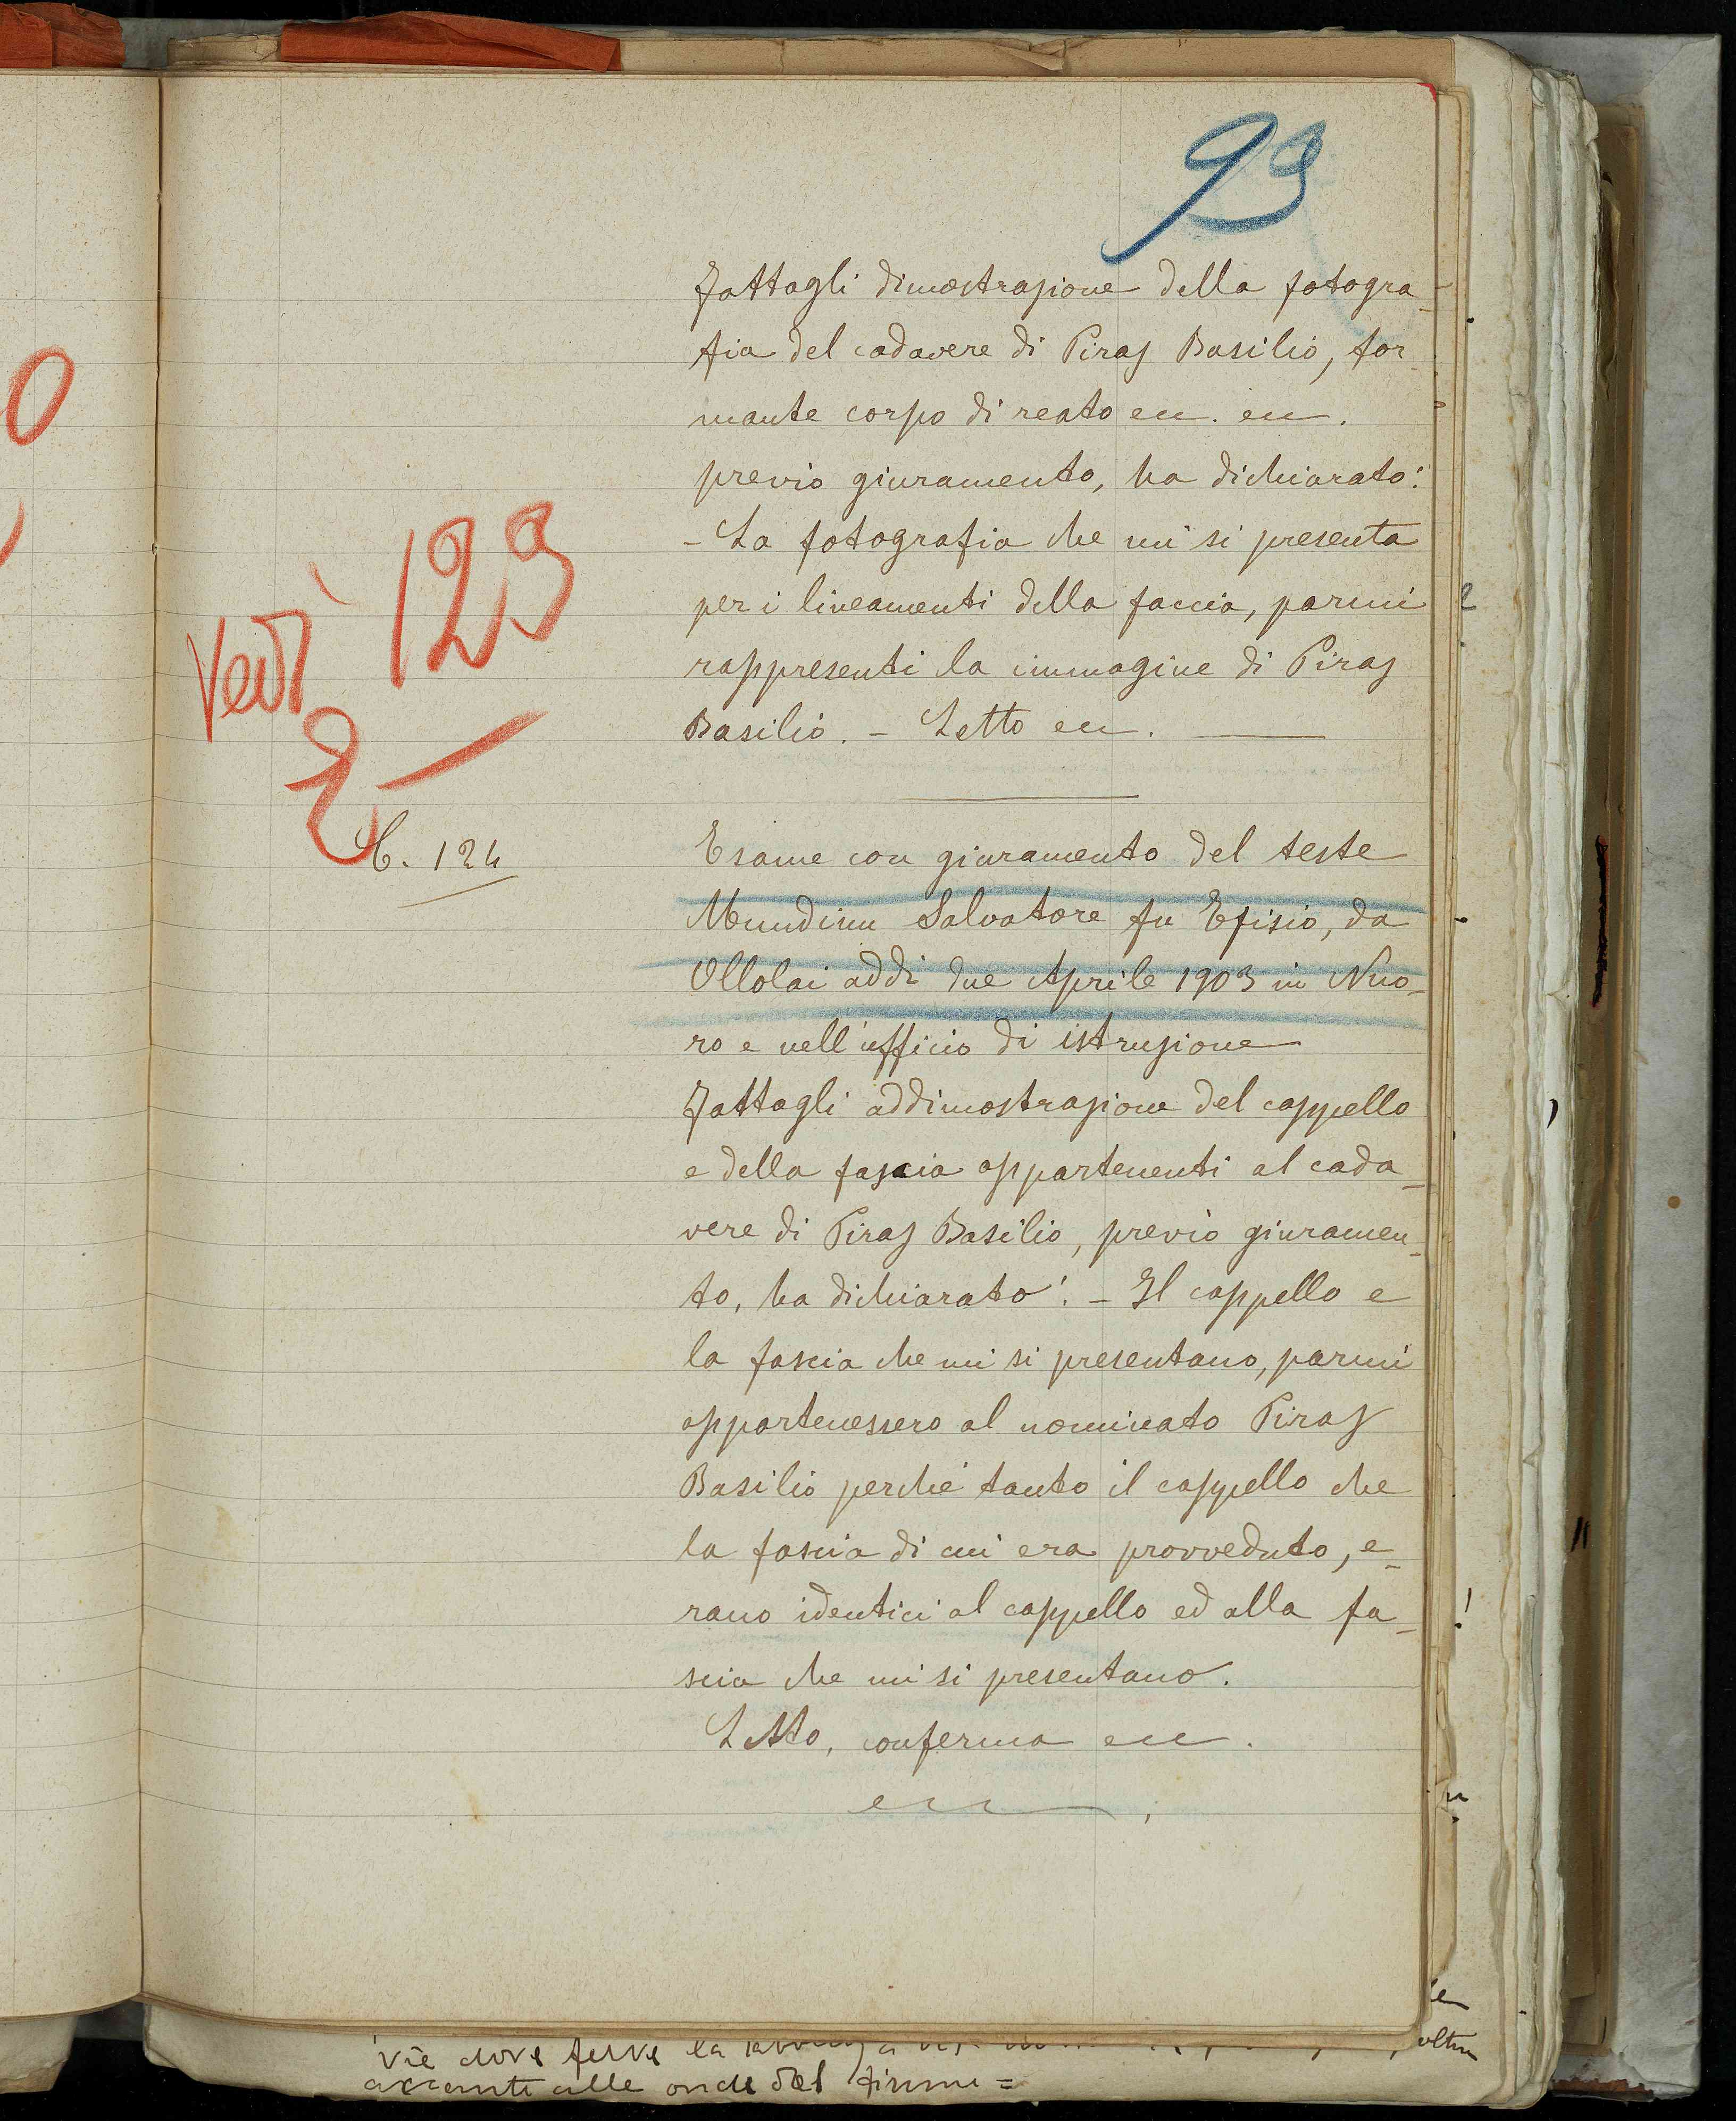 93
Fattagli dimostrazione della fotogra-
fia del cadavere di Piras Basilio, for-
mante corpo di reato ecc. ecc.
previo giuramento, ha dichiarato:
- La fotografia che mi si presenta
per i lineamenti della faccia, parmi
rappresenti la immagine di Piras
Basilio. - Letto ecc.
Vedi 123
C. 124
Esame con giuramento del teste
Mundinu Salvatore fu Efisio, da
Ollolai addì due Aprile 1903 in Nuo-
ro e nell'ufficio di istruzione
Fattagli addimostrazione del cappello
e della fascia appartenenti al cada-
vere di Piras Basilio, previo giuramen-
to, ha dichiarato: - Il cappello e
la fascia che mi si presentano, parmi
appartenessero al nominato Piras
Basilio perché tanto il cappello che
la fascia di cui era provveduto, e-
rano identici al cappello ed alla fa-
scia che mi si presentano.
Letto, conferma ecc.
ecc.
vie dove ferve la
oltre
accanto alle onde del fiume =